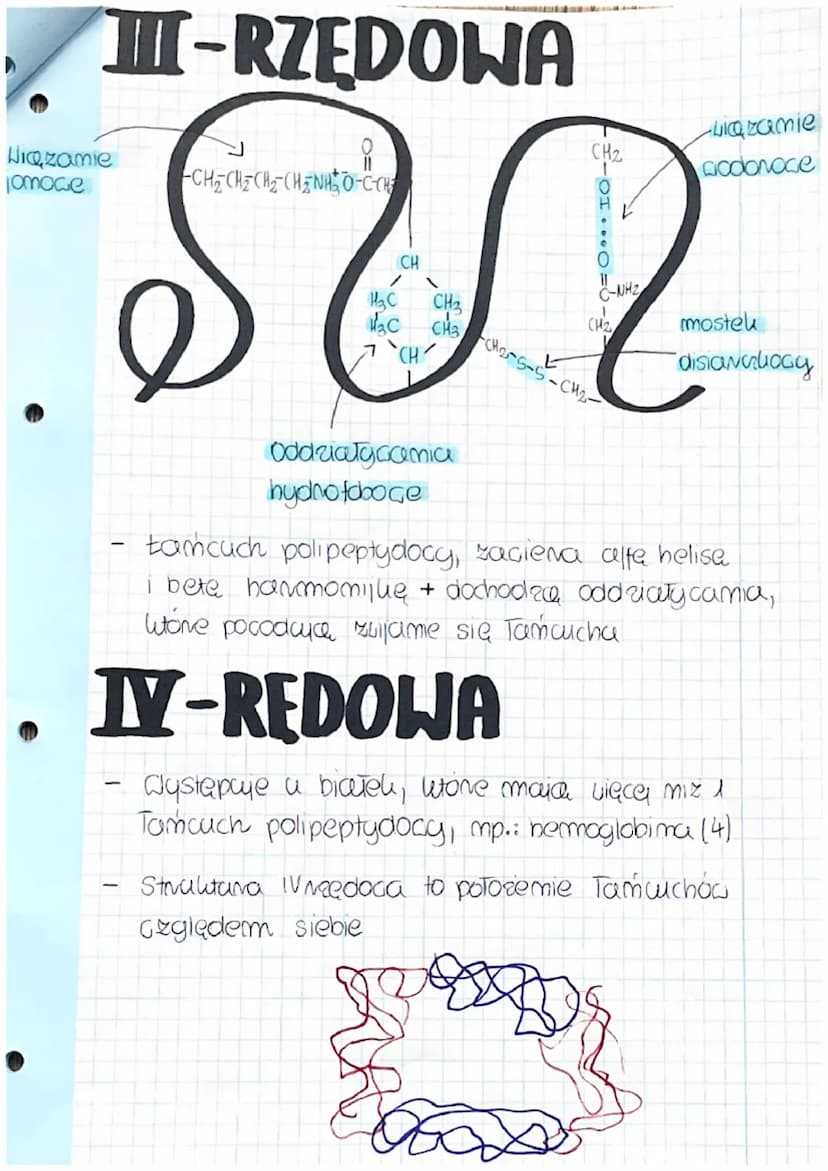 III-RZĘDOWA
Wiązanie
jonowe
wiązanie
wodorowe
-CH2-CH2-CH2-CH2-NH3+ O-C-CH
O
CH2
OH
O
C-NH2
CH2
CH
H3C CH3
H3C CH3
CH
CH2-S-S-CH2-
mostek
disiarczkowy
oddziaływania
hydrofobowe
- Łańcuch polipeptydowy, zawiera alfa helisę
i betę harmonijkę + dochodzą oddziaływania,
które powodują zwijanie się łańcucha
IV-RĘDOWA
- Występuje u białek, które mają więcej niż 1
łańcuch polipeptydowy, np.: hemoglobina (4)
- Struktura IVrzędowa to położenie łańcuchów
względem siebie